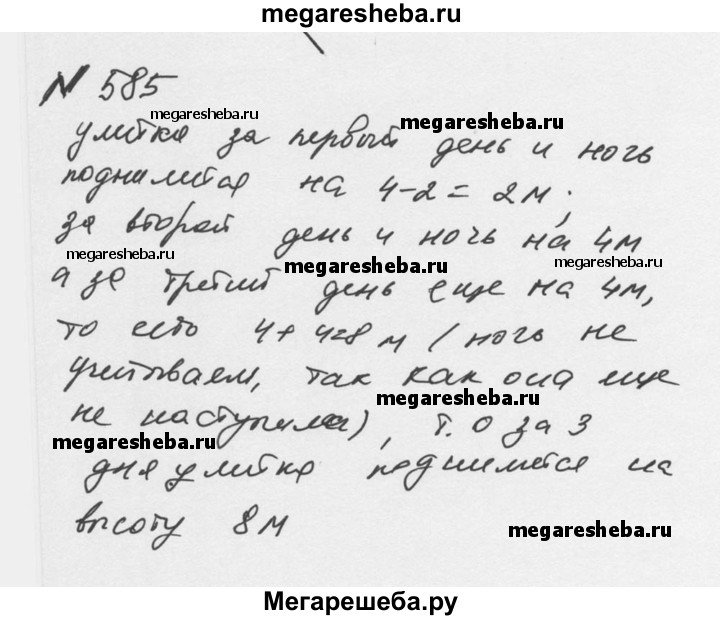 megaresheba.ru
№ 585
megaresheba.ru
megaresheba.ru
улитка за первый день и ночь
поднимется на 4-2 = 2м;
за второй день и ночь на 4м
megaresheba.ru
megaresheba.ru
megaresheba.ru
а за третий день еще на 4м,
то есть 4+4=8 м (ночь не
учитываем, так как она еще
megaresheba.ru
не наступила), т.о за 3
megaresheba.ru
дня улитка поднимется на
высоту 8м
megaresheba.ru
Мегарешеба.ру